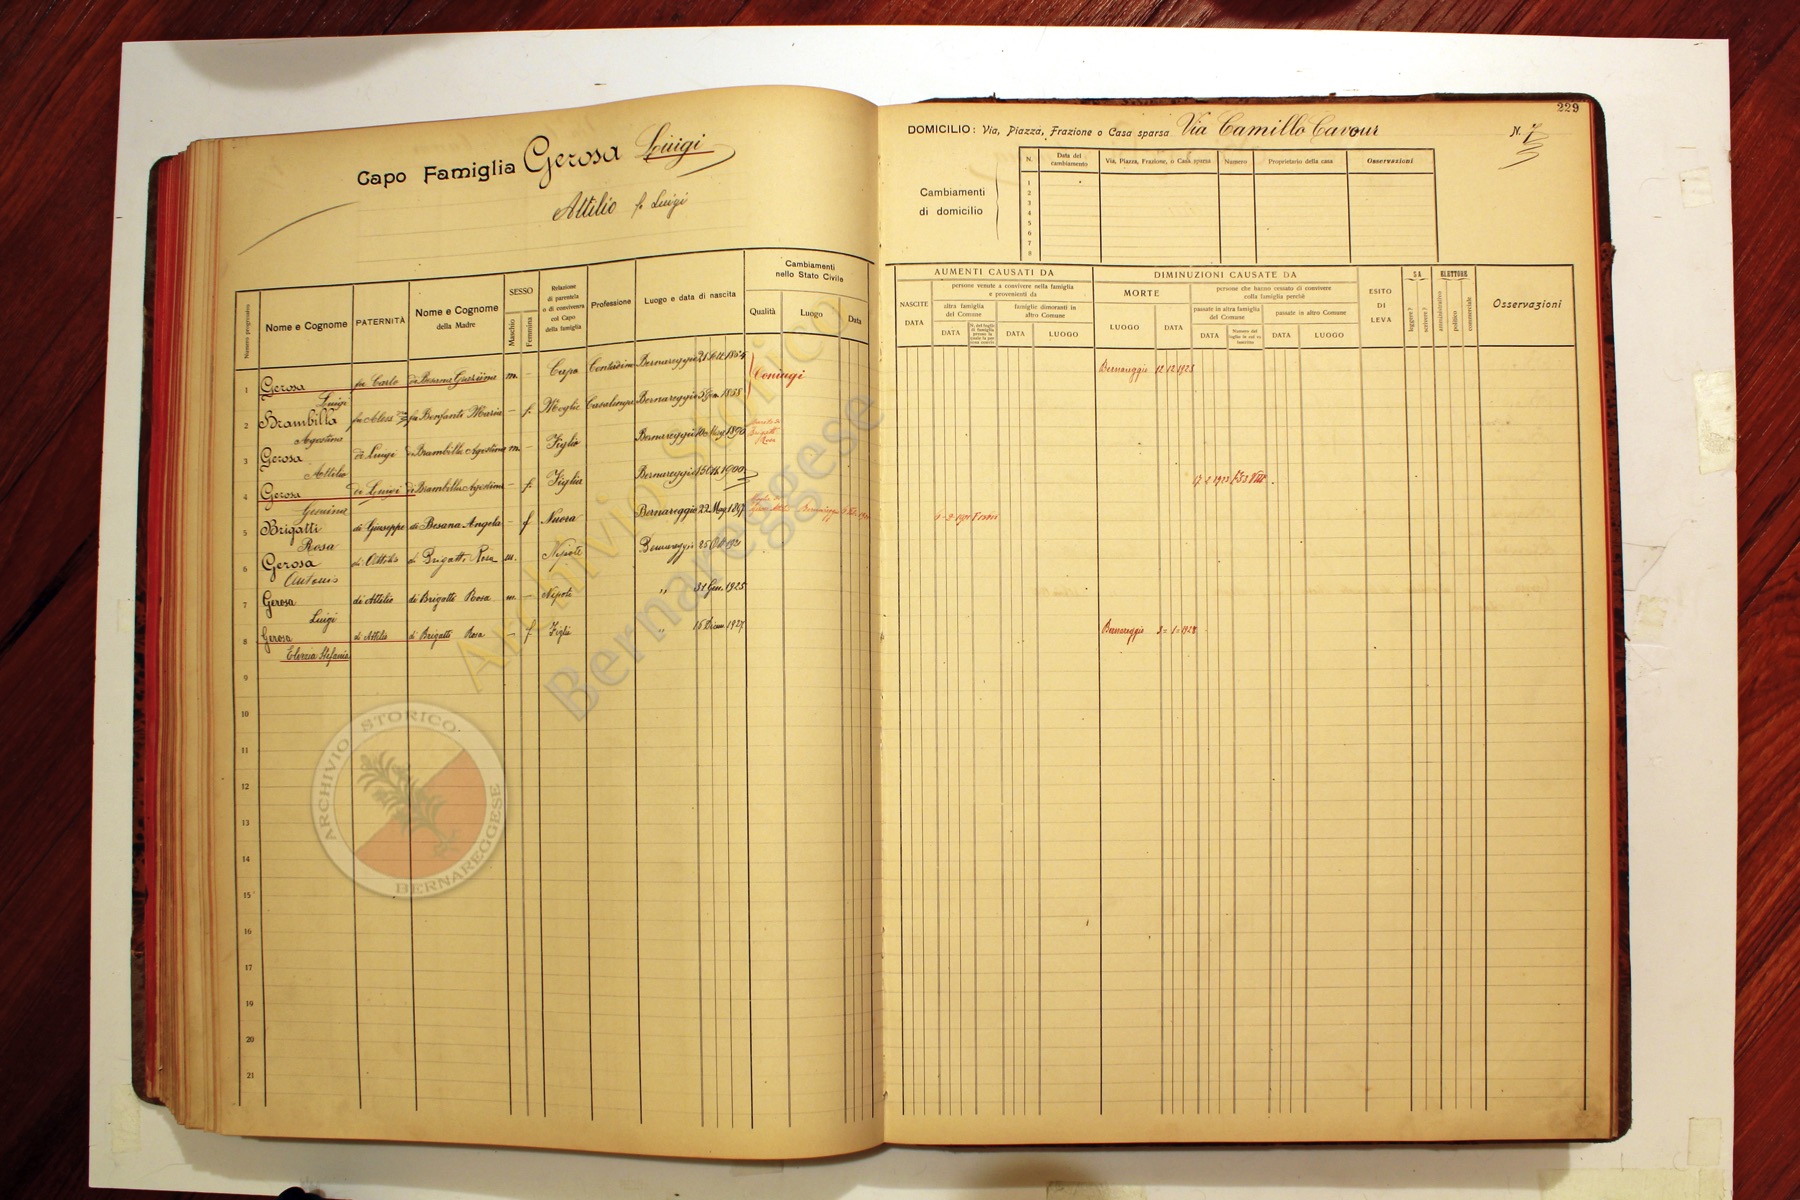 Capo Famiglia Gerosa Luigi
Attilio fu Luigi
229
DOMICILIO: Via, Piazza, Frazione o Casa sparsa Via Camillo Cavour N. 7
Cambiamenti di domicilio
N. Data del cambiamento Via, Piazza, Frazione, o Casa sparsa Numero Proprietario della casa Osservazioni
1
2
3
4
5
6
7
8
Numero progressivo
Nome e Cognome
PATERNITÀ
Nome e Cognome della Madre
SESSO
Maschio
Femmina
Relazione di parentela o di convivenza col Capo della famiglia
Professione
Luogo e data di nascita
Cambiamenti nello Stato Civile
Qualità Luogo Data
NASCITE
DATA
AUMENTI CAUSATI DA
persone venute a convivere nella famiglia e provenienti da
altra famiglia del Comune
famiglie dimoranti in altro Comune
DATA
DATA LUOGO
DIMINUZIONI CAUSATE DA
MORTE
LUOGO DATA
persone che hanno cessato di convivere colla famiglia perchè
passate in altra famiglia del Comune
passate in altro Comune
DATA
DATA LUOGO
ESITO DI LEVA
SA
leggere?
scrivere?
ELETTORE
amministrativo
politico
commerciale
Osservazioni
1 Gerosa Luigi fu Carlo di Besana m. - Capo Contadino Bernareggio 1854 Coniugi Bernareggio 12 12 1923
2 Brambilla Agostina fu Bonfanti Maria - f. Moglie Casalinga Bernareggio 1858
3 Gerosa Attilio di Luigi di Brambilla Agostina m. - Figlio Bernareggio 10 Mag 1896 Brigatti Rosa
4 Gerosa Gemina di Luigi di Brambilla Agostina - f. Figlia Bernareggio 15 1900 17 2 1923
5 Brigatti Rosa di Giuseppe di Besana Angela - f Nuora Bernareggio 22 Mag 1897 Bernareggio
6 Gerosa Antonio di Attilio di Brigatti Rosa m. Nipote Bernareggio 25
7 Gerosa Luigi di Attilio di Brigatti Rosa m. - Nipote " 31 Gen. 1925
8 Gerosa di Attilio di Brigatti Rosa - f Figlia " 15 Dicem 1927 Bernareggio 3=1=1928
Stefania
9
10
11
12
13
14
15
16
17
18
19
20
21
Archivio Storico
Bernareggese
ARCHIVIO STORICO
BERNAREGGESE